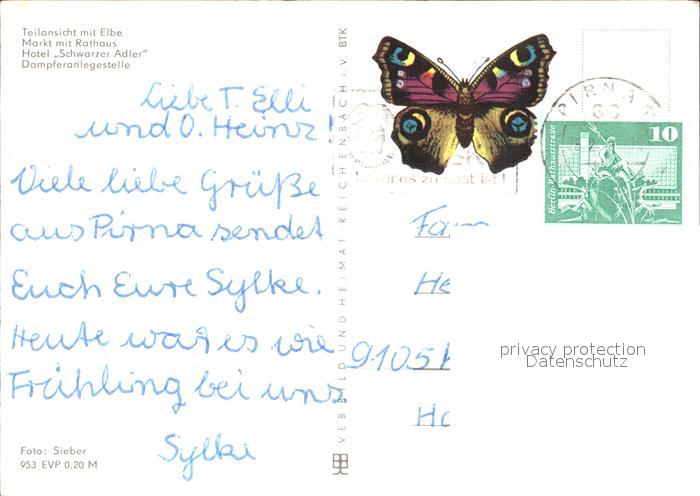 Teilansicht mit Elbe
Markt mit Rathaus
Hotel „Schwarzer Adler"
Dampferanlegestelle
Liebe T. Elli
und O. Heinz!
Viele liebe Grüße
aus Pirna sendet
Euch Eure Sylke.
Heute war es wie
Frühling bei uns
Sylke
Foto: Sieber
953 EVP 0,20 M
VEB BILD UND HEIMAT REICHENBACH i. V. BTK
es zu spät ist!
PIRNA
10
Berlin-Rathausstraße
Fam
He
9105
Ho
privacy protection
Datenschutz